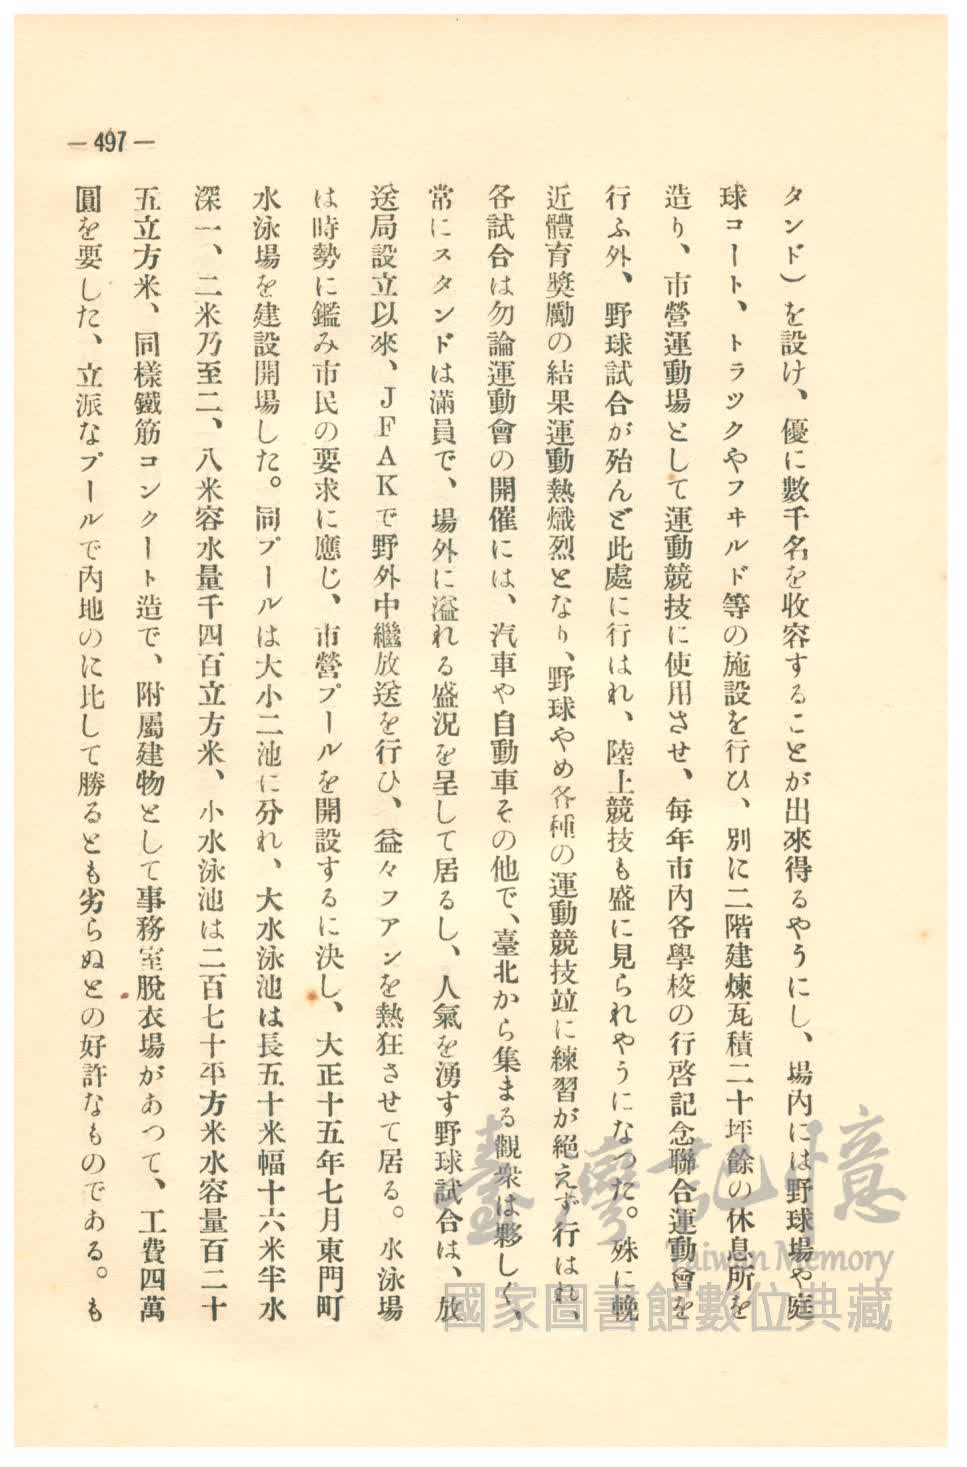 — 497 —
タンド）を設け、優に數千名を收容することが出來得るやうにし、場内には野球場や庭
球コート、トラツクやフヰルド等の施設を行ひ、別に二階建煉瓦積二十坪餘の休息所を
造り、市營運動場として運動競技に使用させ、每年市内各學校の行啓記念聯合運動會を
行ふ外、野球試合が殆んど此處に行はれ、陸上競技も盛に見られやうになつた。殊に輓
近體育獎勵の結果運動熱熾烈となり、野球やめ各種の運動競技竝に練習が絶えず行はれ、
各試合は勿論運動會の開催には、汽車や自動車その他で、臺北から集まる觀衆は夥しく、
常にスタンドは滿員で、場外に溢れる盛況を呈して居るし、人氣を湧す野球試合は、放
送局設立以來、ＪＦＡＫで野外中繼放送を行ひ、益々フアンを熱狂させて居る。水泳場
は時勢に鑑み市民の要求に應じ、市營プールを開設するに決し、大正十五年七月東門町
水泳場を建設開場した。同プールは大小二池に分れ、大水泳池は長五十米幅十六米半水
深一、二米乃至二、八米容水量千四百立方米、小水泳池は二百七十平方米水容量百二十
五立方米、同樣鐵筋コンクート造で、附屬建物として事務室脫衣場があつて、工費四萬
圓を要した、立派なプールで内地のに比して勝るとも劣らぬとの好評なものである。も
臺灣記憶
Taiwan Memory
國家圖書館數位典藏